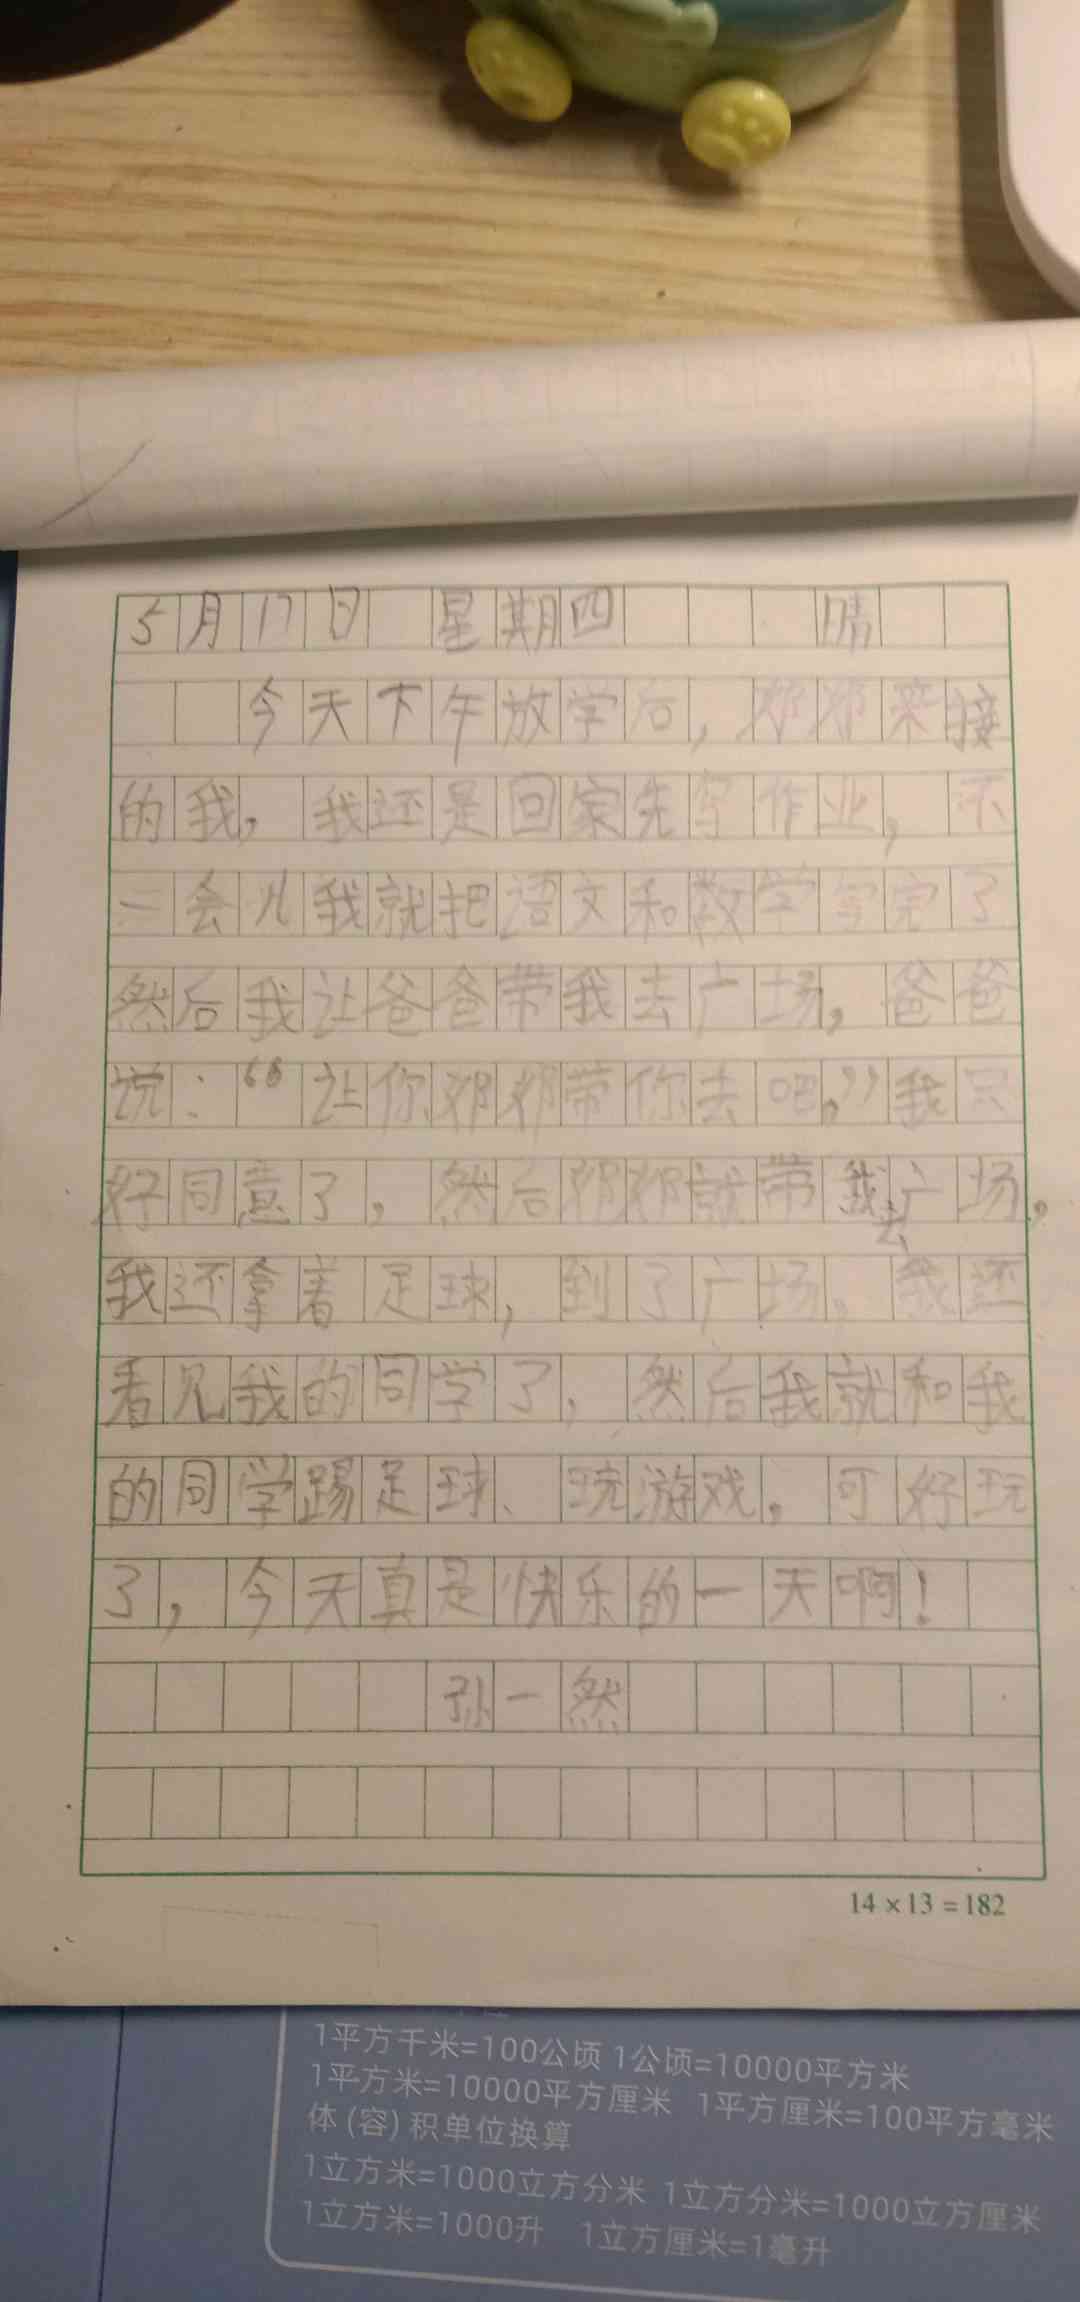 5月17日 星期四 晴
今天下午放学后，邓邓来接
的我，我还是回家先写作业，不
一会儿我就把语文和数学写完了
然后我让爸爸带我去广场，爸爸
说：“让你邓邓带你去吧。”我只
好同意了，然后邓邓就带我去广场，
我还拿着足球，到了广场，我还
看见我的同学了，然后我就和我
的同学踢足球、玩游戏，可好玩
了，今天真是快乐的一天啊！
孙一然
14×13=182
1平方千米=100公顷 1公顷=10000平方米
1平方米=10000平方厘米 1平方厘米=100平方毫米
体(容)积单位换算
1立方米=1000立方分米 1立方分米=1000立方厘米
1立方米=1000升 1立方厘米=1毫升